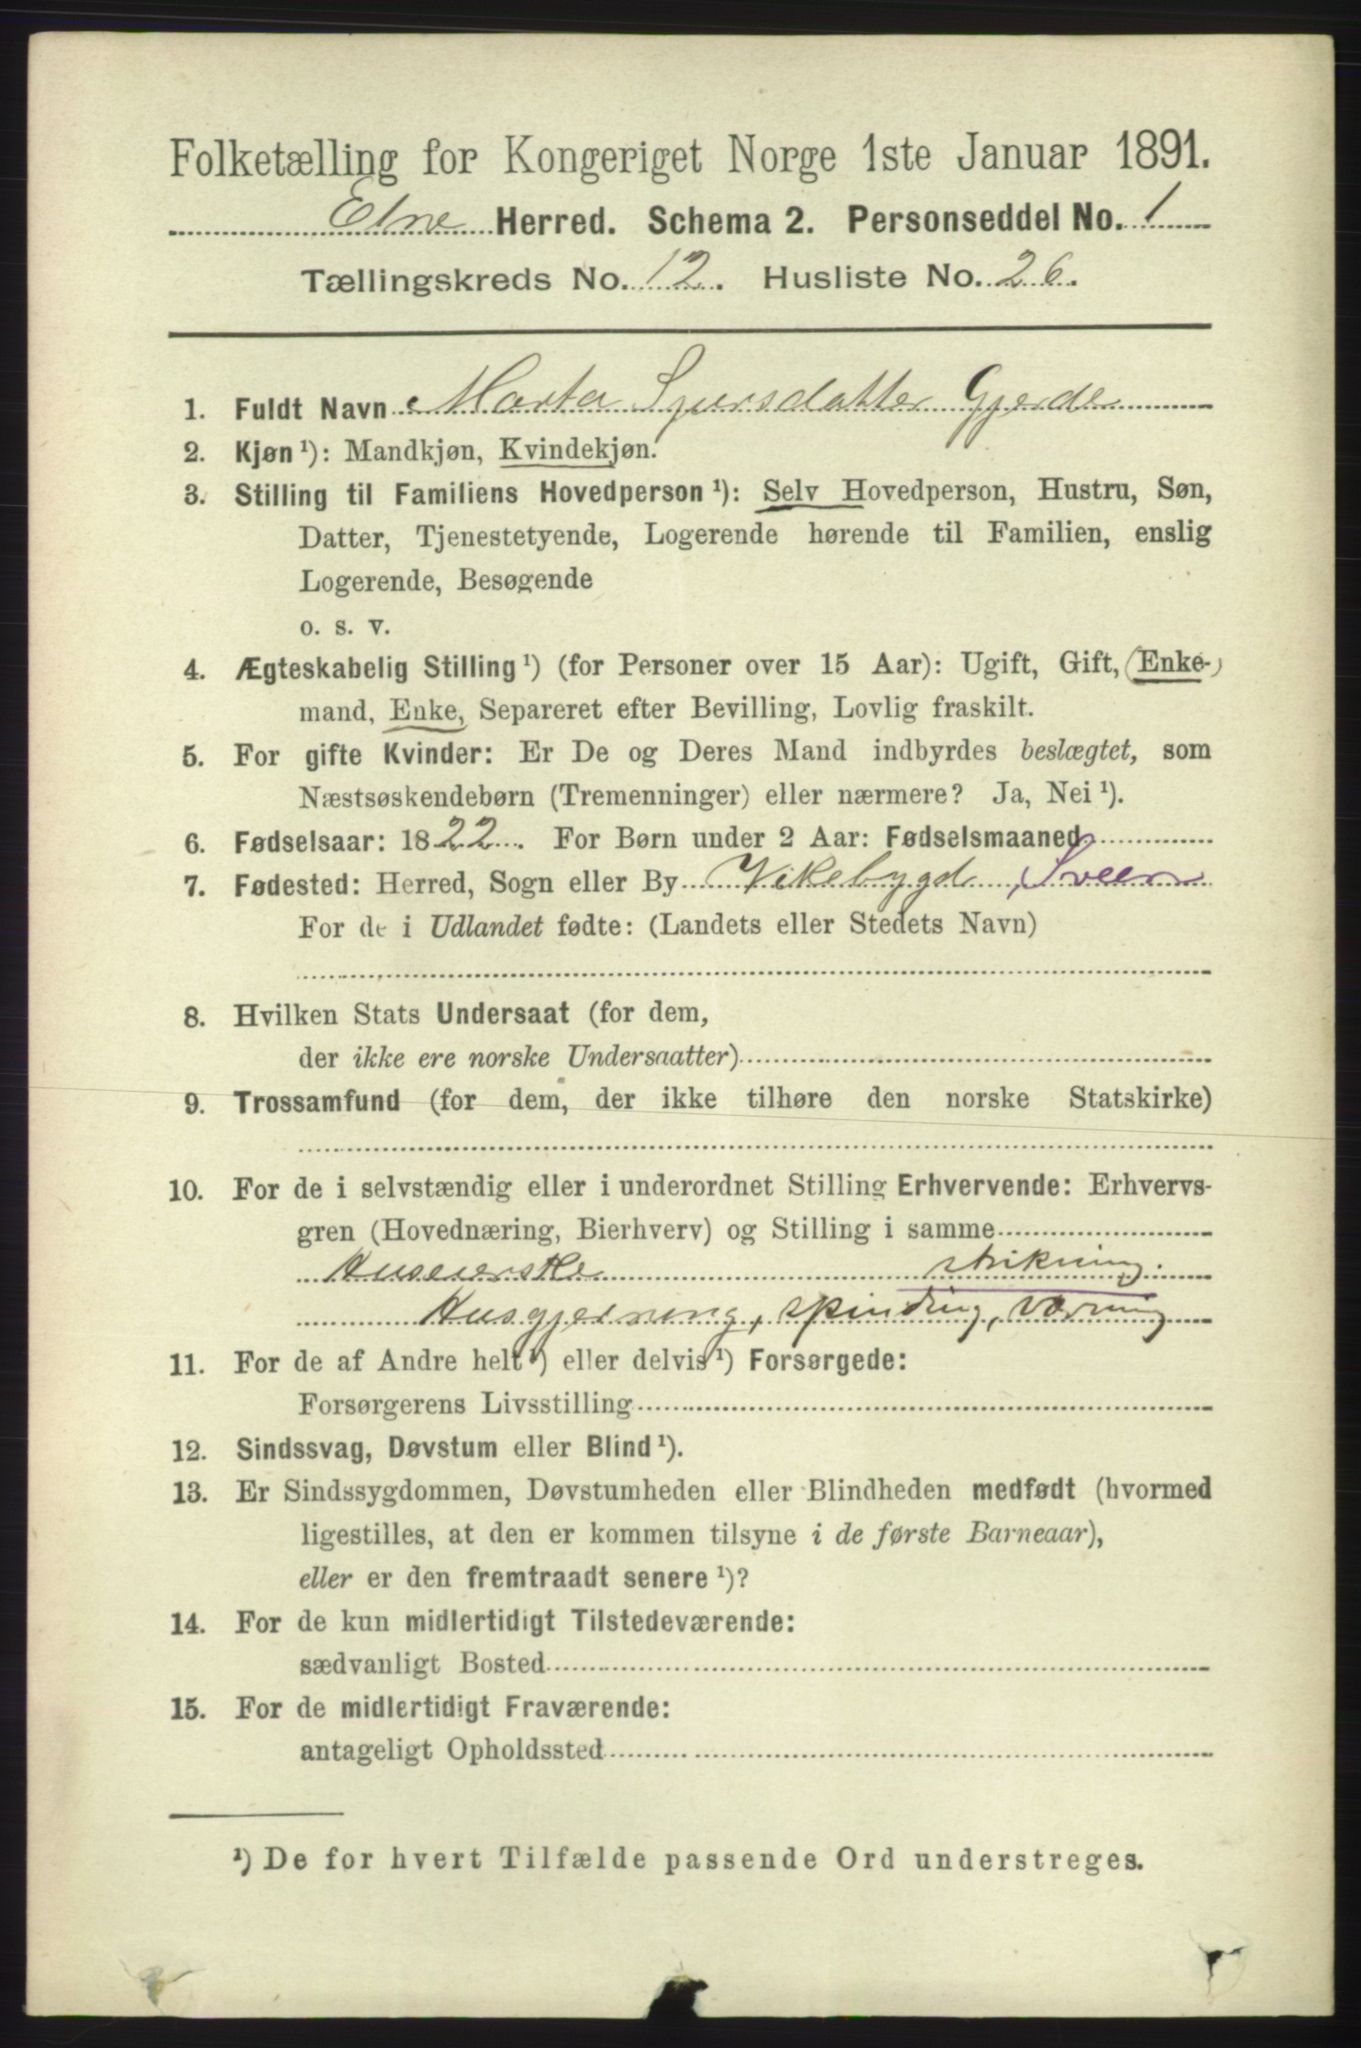 Folketælling for Kongeriget Norge 1ste Januar 1891.
Etne Herred. Schema 2. Personseddel No. 1
Tællingskreds No. 12. Husliste No. 26.
1. Fuldt Navn Marta Sjursdatter Gjerde
2. Kjøn ¹): Mandkjøn, Kvindekjøn.
3. Stilling til Familiens Hovedperson ¹): Selv Hovedperson, Hustru, Søn,
Datter, Tjenestetyende, Logerende hørende til Familien, enslig
Logerende, Besøgende
o. s. v.
4. Ægteskabelig Stilling ¹) (for Personer over 15 Aar): Ugift, Gift, (Enke-)
mand, Enke, Separeret efter Bevilling, Lovlig fraskilt.
5. For gifte Kvinder: Er De og Deres Mand indbyrdes beslægtet, som
Næstsøskendebørn (Tremenninger) eller nærmere? Ja, Nei ¹).
6. Fødselsaar: 1822. For Børn under 2 Aar: Fødselsmaaned
7. Fødested: Herred, Sogn eller By Vikebygd, Sveen
For de i Udlandet fødte: (Landets eller Stedets Navn)
8. Hvilken Stats Undersaat (for dem,
der ikke ere norske Undersaatter)
9. Trossamfund (for dem, der ikke tilhøre den norske Statskirke)
10. For de i selvstændig eller i underordnet Stilling Erhvervende: Erhvervs-
gren (Hovednæring, Bierhverv) og Stilling i samme
Huseierske strikning.
Husgjerning, spinding, Vævning
11. For de af Andre helt ¹) eller delvis ¹) Forsørgede:
Forsørgerens Livsstilling
12. Sindssvag, Døvstum eller Blind ¹).
13. Er Sindssygdommen, Døvstumheden eller Blindheden medfødt (hvormed
ligestilles, at den er kommen tilsyne i de første Barneaar),
eller er den fremtraadt senere ¹)?
14. For de kun midlertidigt Tilstedeværende:
sædvanligt Bosted
15. For de midlertidigt Fraværende:
antageligt Opholdssted
¹) De for hvert Tilfælde passende Ord understreges.